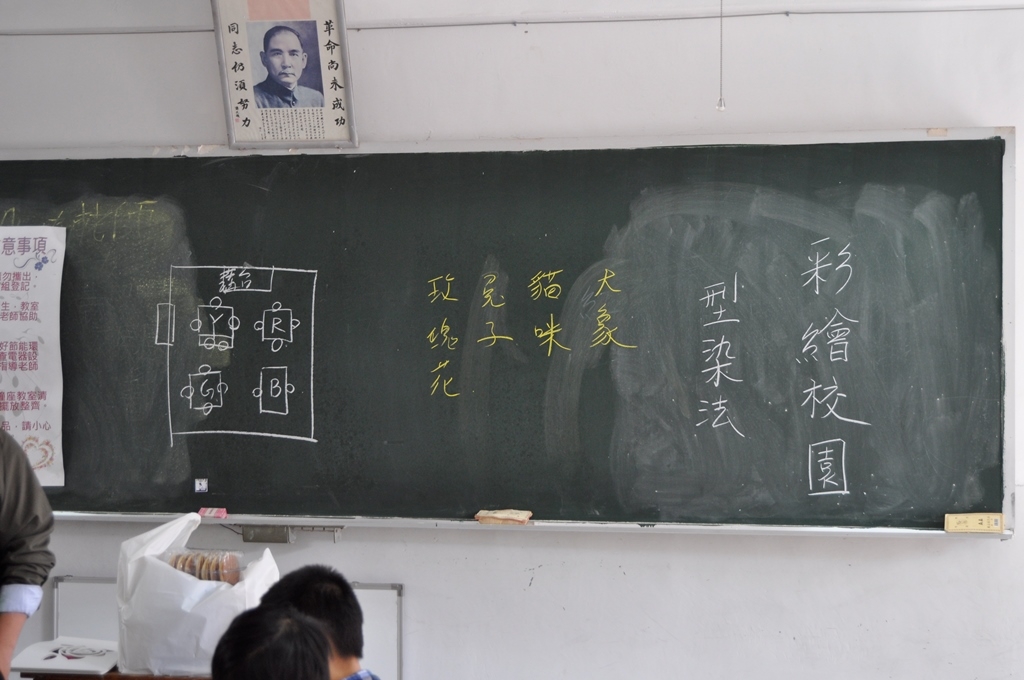 革命尚未成功
同志仍須努力
彩繪校園
型染法
大象
貓咪
兔子
玫瑰花
講台
Y
R
G
B
意事項
勿攜出，
組登記。
生．教室
老師協助
好節能環
電器設
指導老師
座教室清
擺放整齊，
品，請小心